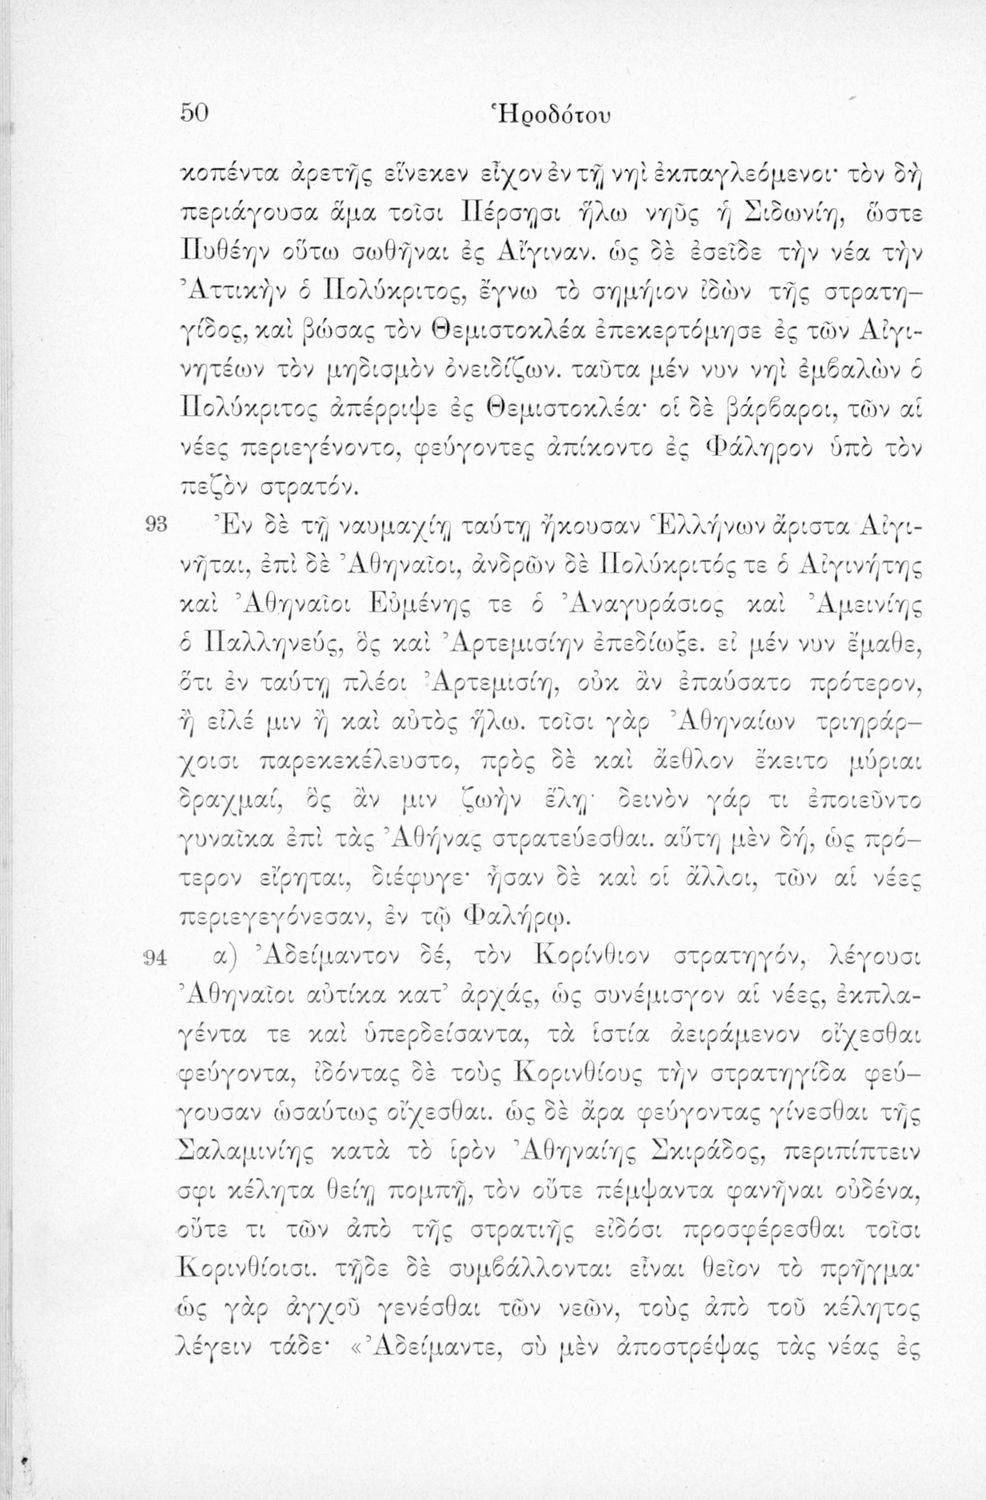 50 Ἡροδότου
κοπέντα ἀρετῆς εἵνεκεν εἶχον ἐν τῇ νηὶ ἐκπαγλεόμενοι· τὸν δὴ
περιάγουσα ἅμα τοῖσι Πέρσῃσι ἥλω νηῦς ἡ Σιδωνίη, ὥστε
Πυθέην οὕτω σωθῆναι ἐς Αἴγιναν. ὡς δὲ ἐσεῖδε τὴν νέα τὴν
Ἀττικὴν ὁ Πολύκριτος, ἔγνω τὸ σημήιον ἰδὼν τῆς στρατη-
γίδος, καὶ βώσας τὸν Θεμιστοκλέα ἐπεκερτόμησε ἐς τῶν Αἰγι-
νητέων τὸν μηδισμὸν ὀνειδίζων. ταῦτα μέν νυν νηὶ ἐμβαλὼν ὁ
Πολύκριτος ἀπέρριψε ἐς Θεμιστοκλέα· οἱ δὲ βάρβαροι, τῶν αἱ
νέες περιεγένοντο, φεύγοντες ἀπίκοντο ἐς Φάληρον ὑπὸ τὸν
πεζὸν στρατόν.
93 Ἐν δὲ τῇ ναυμαχίῃ ταύτῃ ἤκουσαν Ἑλλήνων ἄριστα Αἰγι-
νῆται, ἐπὶ δὲ Ἀθηναῖοι, ἀνδρῶν δὲ Πολύκριτός τε ὁ Αἰγινήτης
καὶ Ἀθηναῖοι Εὐμένης τε ὁ Ἀναγυράσιος καὶ Ἀμεινίης
ὁ Παλληνεύς, ὃς καὶ Ἀρτεμισίην ἐπεδίωξε. εἰ μέν νυν ἔμαθε,
ὅτι ἐν ταύτῃ πλέοι Ἀρτεμισίη, οὐκ ἂν ἐπαύσατο πρότερον,
ἢ εἷλέ μιν ἢ καὶ αὐτὸς ἥλω. τοῖσι γὰρ Ἀθηναίων τριηράρ-
χοισι παρεκεκέλευστο, πρὸς δὲ καὶ ἄεθλον ἔκειτο μύριαι
δραχμαί, ὃς ἄν μιν ζωὴν ἕλῃ· δεινὸν γάρ τι ἐποιεῦντο
γυναῖκα ἐπὶ τὰς Ἀθήνας στρατεύεσθαι. αὕτη μὲν δή, ὡς πρό-
τερον εἴρηται, διέφυγε· ἦσαν δὲ καὶ οἱ ἄλλοι, τῶν αἱ νέες
περιεγεγόνεσαν, ἐν τῷ Φαλήρῳ.
94 α) Ἀδείμαντον δέ, τὸν Κορίνθιον στρατηγόν, λέγουσι
Ἀθηναῖοι αὐτίκα κατ’ ἀρχάς, ὡς συνέμισγον αἱ νέες, ἐκπλα-
γέντα τε καὶ ὑπερδείσαντα, τὰ ἱστία ἀειράμενον οἴχεσθαι
φεύγοντα, ἰδόντας δὲ τοὺς Κορινθίους τὴν στρατηγίδα φεύ-
γουσαν ὡσαύτως οἴχεσθαι. ὡς δὲ ἄρα φεύγοντας γίνεσθαι τῆς
Σαλαμινίης κατὰ τὸ ἱρὸν Ἀθηναίης Σκιράδος, περιπίπτειν
σφι κέλητα θείῃ πομπῇ, τὸν οὔτε πέμψαντα φανῆναι οὐδένα,
οὔτε τι τῶν ἀπὸ τῆς στρατιῆς εἰδόσι προσφέρεσθαι τοῖσι
Κορινθίοισι. τῇδε δὲ συμβάλλονται εἶναι θεῖον τὸ πρῆγμα·
ὡς γὰρ ἀγχοῦ γενέσθαι τῶν νεῶν, τοὺς ἀπὸ τοῦ κέλητος
λέγειν τάδε· «Ἀδείμαντε, σὺ μὲν ἀποστρέψας τὰς νέας ἐς